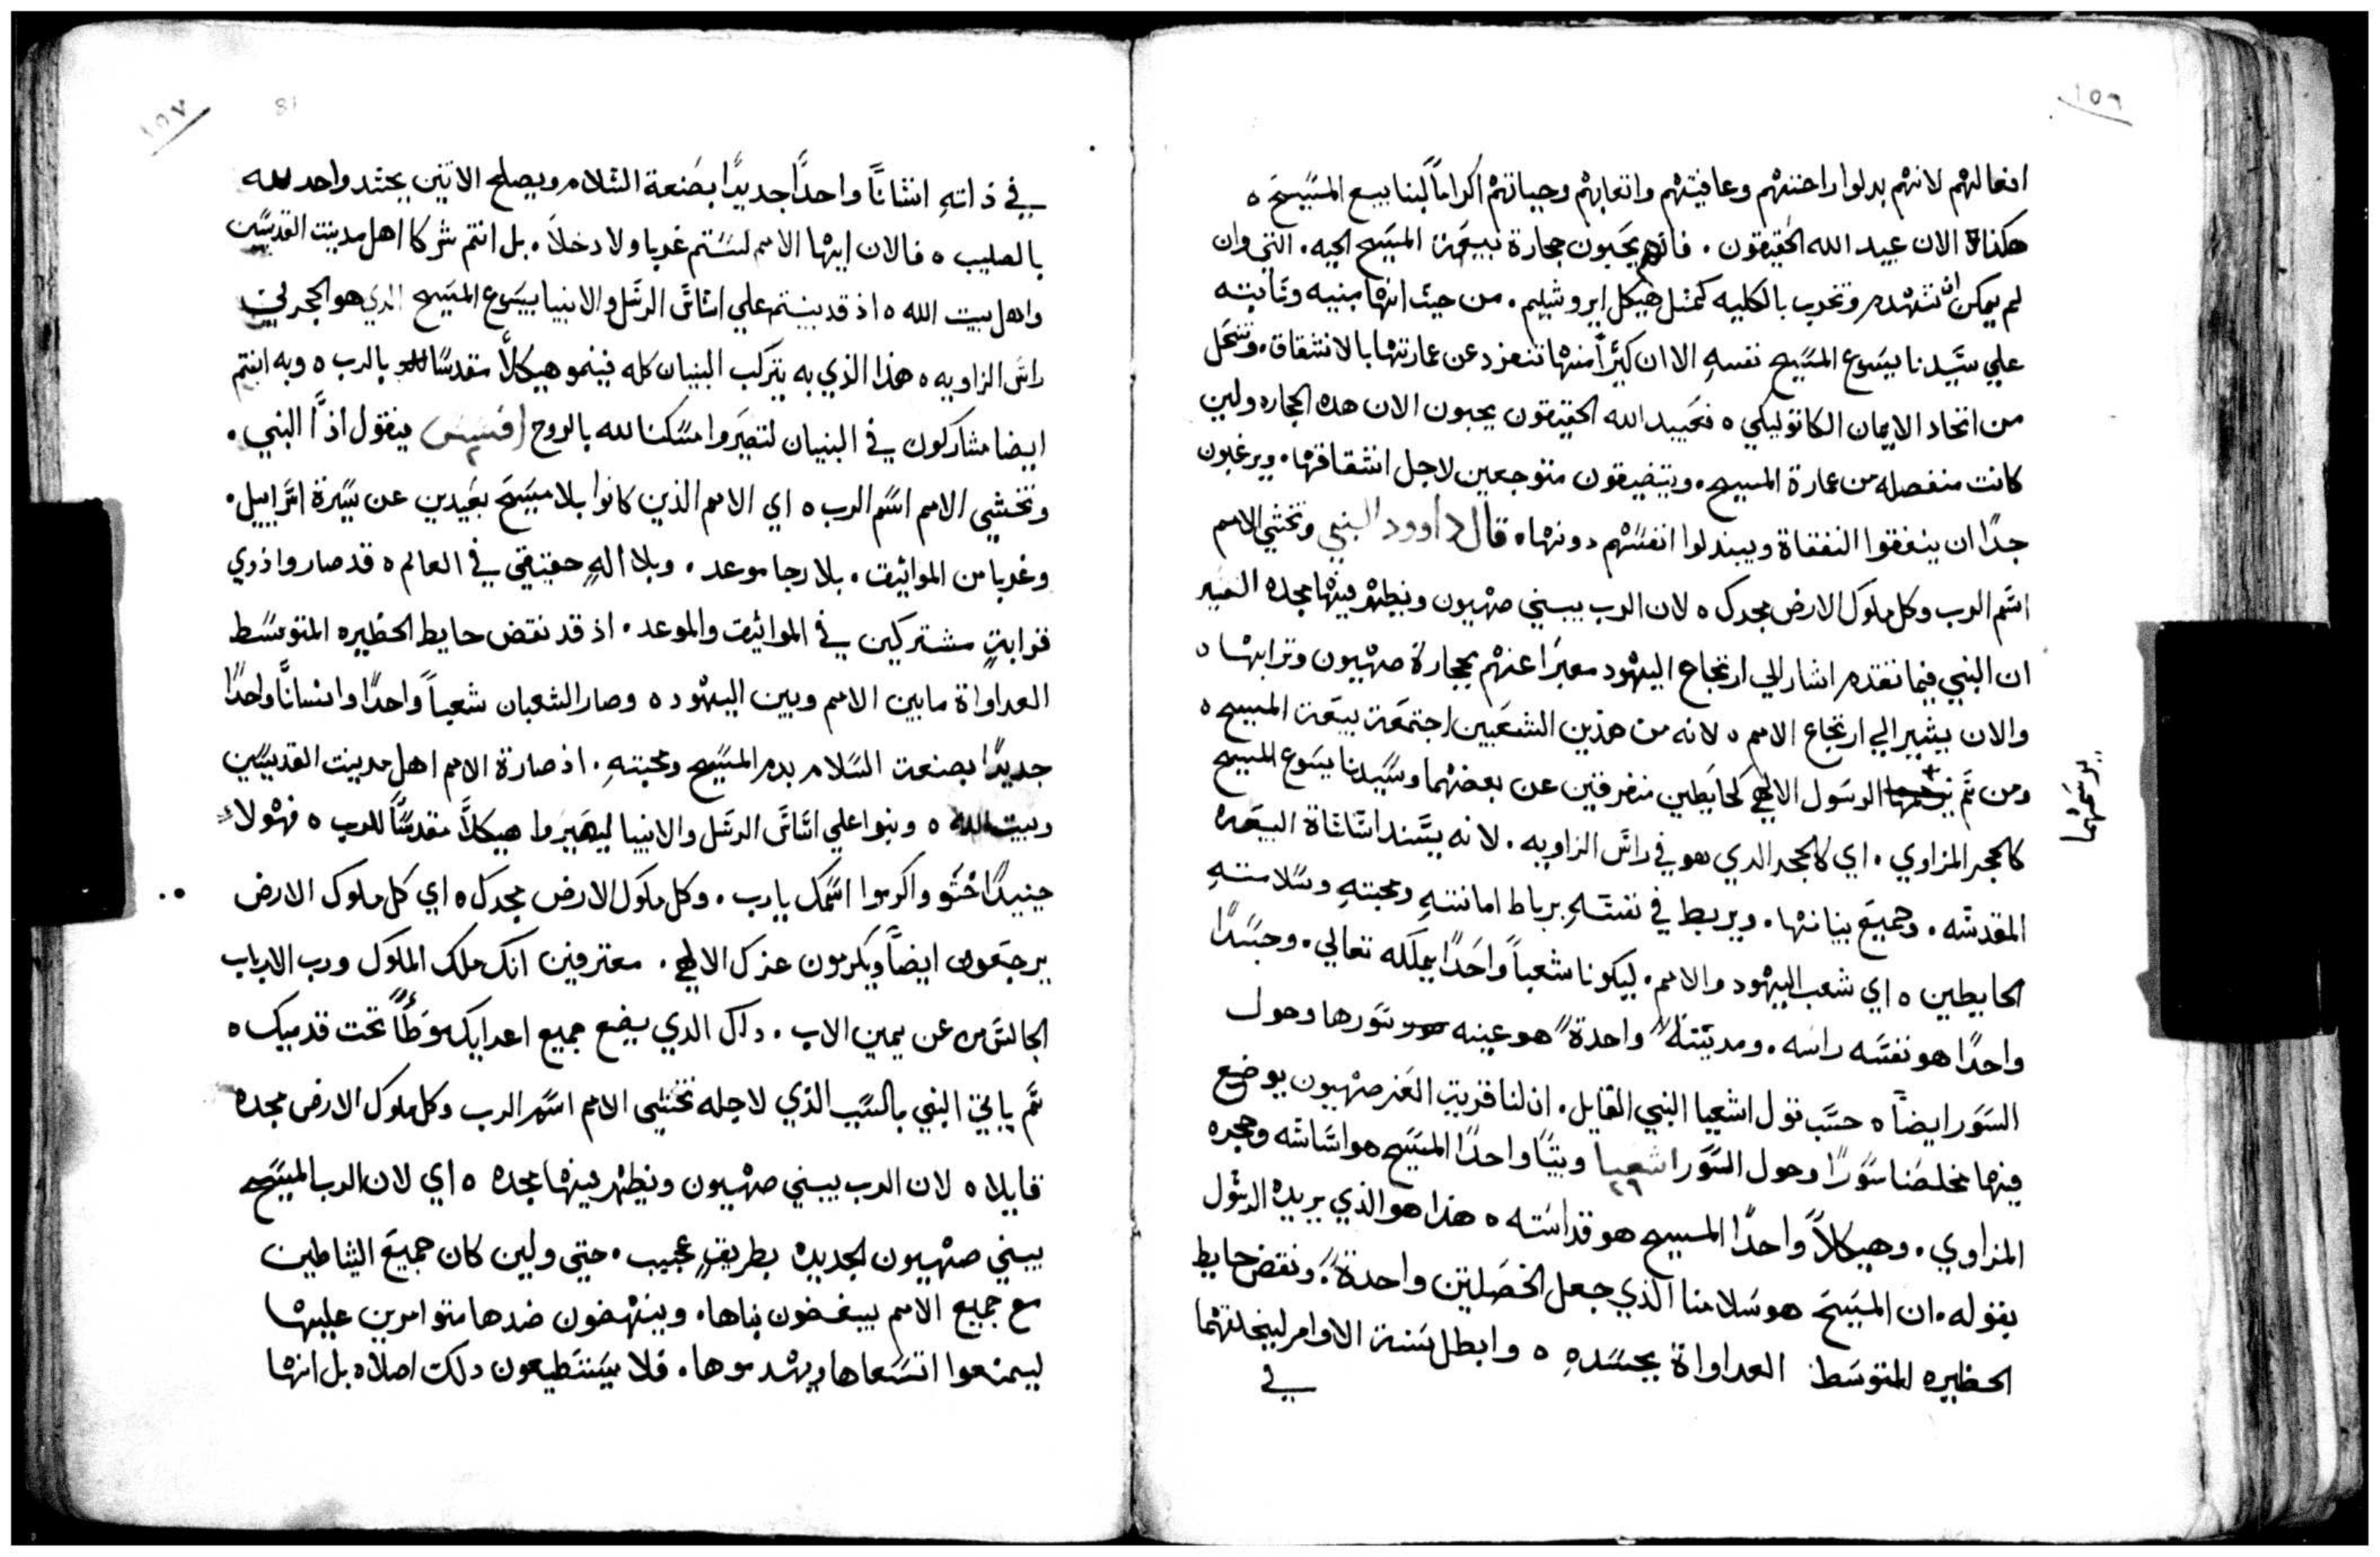 ١٥٦
افعالهم لانهم بدلوا راحتهم وعافيتهم واتعابهم وحياتهم اكراماً لبنا بيع المسيح ه
هكذاة الان عبيد الله الحقيقون . فانهم يحبون حجارة بيعة المسيح الحيه . التي وان
لم يمكن ان تنهدم وتخرب بالكليه كمثل هيكل ايروشليم . من حيث انها مبنيه وثابته
علي سيدنا يسوع المسيح نفسهِ الا ان كثيراً منها تنفرد عن عمارتها بالانشقاق . وتنحل
من اتحاد الايمان الكاتوليكي ه فعبيد الله الحقيقون يحبون الان هده الحجاره ولين
كانت منفصله من عمارة المسيح . ويتضيقون متوجعين لاجل انشقاقها . ويرغبون
جداً ان ينفقوا النفقاة ويبدلوا انفسهم دونها . قال داوود النبي وتخشي الامم
اسم الرب وكل ملوك الارض مجدك ه لان الرب يبني صهيون ويظهر فيها مجده
ان النبي فيما تقدم اشار الي ارتجاع اليهود معبراً عنهم بحجارة صهيون وترابها ه
والان يشير الي ارتجاع الامم ه لانه من هذين الشعبين اجتمعة بيعة المسيح ه
ومن ثم الرسول الالهي كحايطين متفرقين عن بعضهما وسيدنا يسوع المسيح
يوسمهما
كالحجر المزاوي . اي كالحجر الدي هو في راس الزاويه . لانه يسند اساساة البيعه
المقدسه . وجميع بنيانها . ويربط في نفسهِ برباط امانتهِ ومحبتهِ وسلامتهِ
الحايطين ه اي شعب اليهود والامم . ليكونا شعباً واحداً يملكه تعالي . وجسداً
واحداً هو نفسه راسه . ومدينةً واحدةً هو عينه سورها وحول
السور ايضاً ه حسب قول اشعيا النبي القايل . ان لنا قرية العز صهيون يوضع
فيها مخلصنا سوراً وحول السور اشعيا ٢٦ وبيتاً واحداً المسيح هو اساسه وحجره
المزاوي . وهيكلاً واحداً المسيح هو قداسته ه هذا هو الذي يريده الرسول
بقوله . ان المسيح هو سلامنا الذي جعل الخصلتين واحدةً . ونقض حايط
الحظيره المتوسط العداواة بجسدهِ ه وابطل سنة الاوامر ليخلقهما
في
١٥٧
81
في ذاتهِ انساناً واحداً جديداً بصنعة السلام ويصلح الاتنين بجسد واحد لله
بالصليب ه فالان ايها الامم لستم غربا ولا دخلاَ . بل انتم شركا اهل مدينت القديسين
واهل بيت الله ه اذ قد بنيتم علي اساس الرسل والانبيا بيسوع المسيح الدي هو الحجر في
راس الزاويه ه هذا الذي به يتركب البنيان كله فينمو هيكلاً مقدسا بالرب ه وبه انتم
ايضا مشاركون في البنيان لتصيروا مسكنا لله بالروح افسس ٢ فيقول اذاً النبي .
وتخشي الامم اسم الرب ه اي الامم الذين كانوا بلا مسيح بعيدين عن سيرة اسراييل .
وغربا من المواثيق . بلا رجا موعد . وبلا الهِ حقيقي في العالم ه قد صاروا ذوي
قرابةٍ مشتركين في المواثيق والموعد . اذ قد نقض حايط الحظيره المتوسط
العداواة ما بين الامم وبين اليهود ه وصار الشعبان شعباً واحداً وانساناً واحداً
جديداً بصنعة السلام بدم المسيح ومحبتهِ . اذ صارة الامم اهل مدينت القديسين
وبيت الله ه وبنوا علي اساس الرسل والانبيا ليصيروا هيكلاً مقدساً للرب ه فهولاء
حينيدٍ اختشو واكرموا اسمك يارب . وكل ملوك الارض مجدك ه اي كل ملوك الارض
يرجعون ايضاً ويكرمون عزك الالهي . معترفين انك ملك الملوك ورب الارباب
الجالس من عن يمين الاب . داك الدي يضع جميع اعدايك موطاً تحت قدميك ه
ثم ياتي النبي بالسبب الذي لاجله تخشي الامم اسم الرب وكل ملوك الارض مجده
قايلا ه لان الرب يبني صهيون ويظهر فيها مجده ه اي لان الرب المسيح
يبني صهيون الجديده بطريقٍ عجيب . حتي ولين كان جميع الشياطين
مع جميع الامم يبغضون بناها . وينهضون ضدها متوامرين عليها
ليمنعوا اتساعها ويهدموها . فلا يستطيعون دلك اصلا ه بل انها